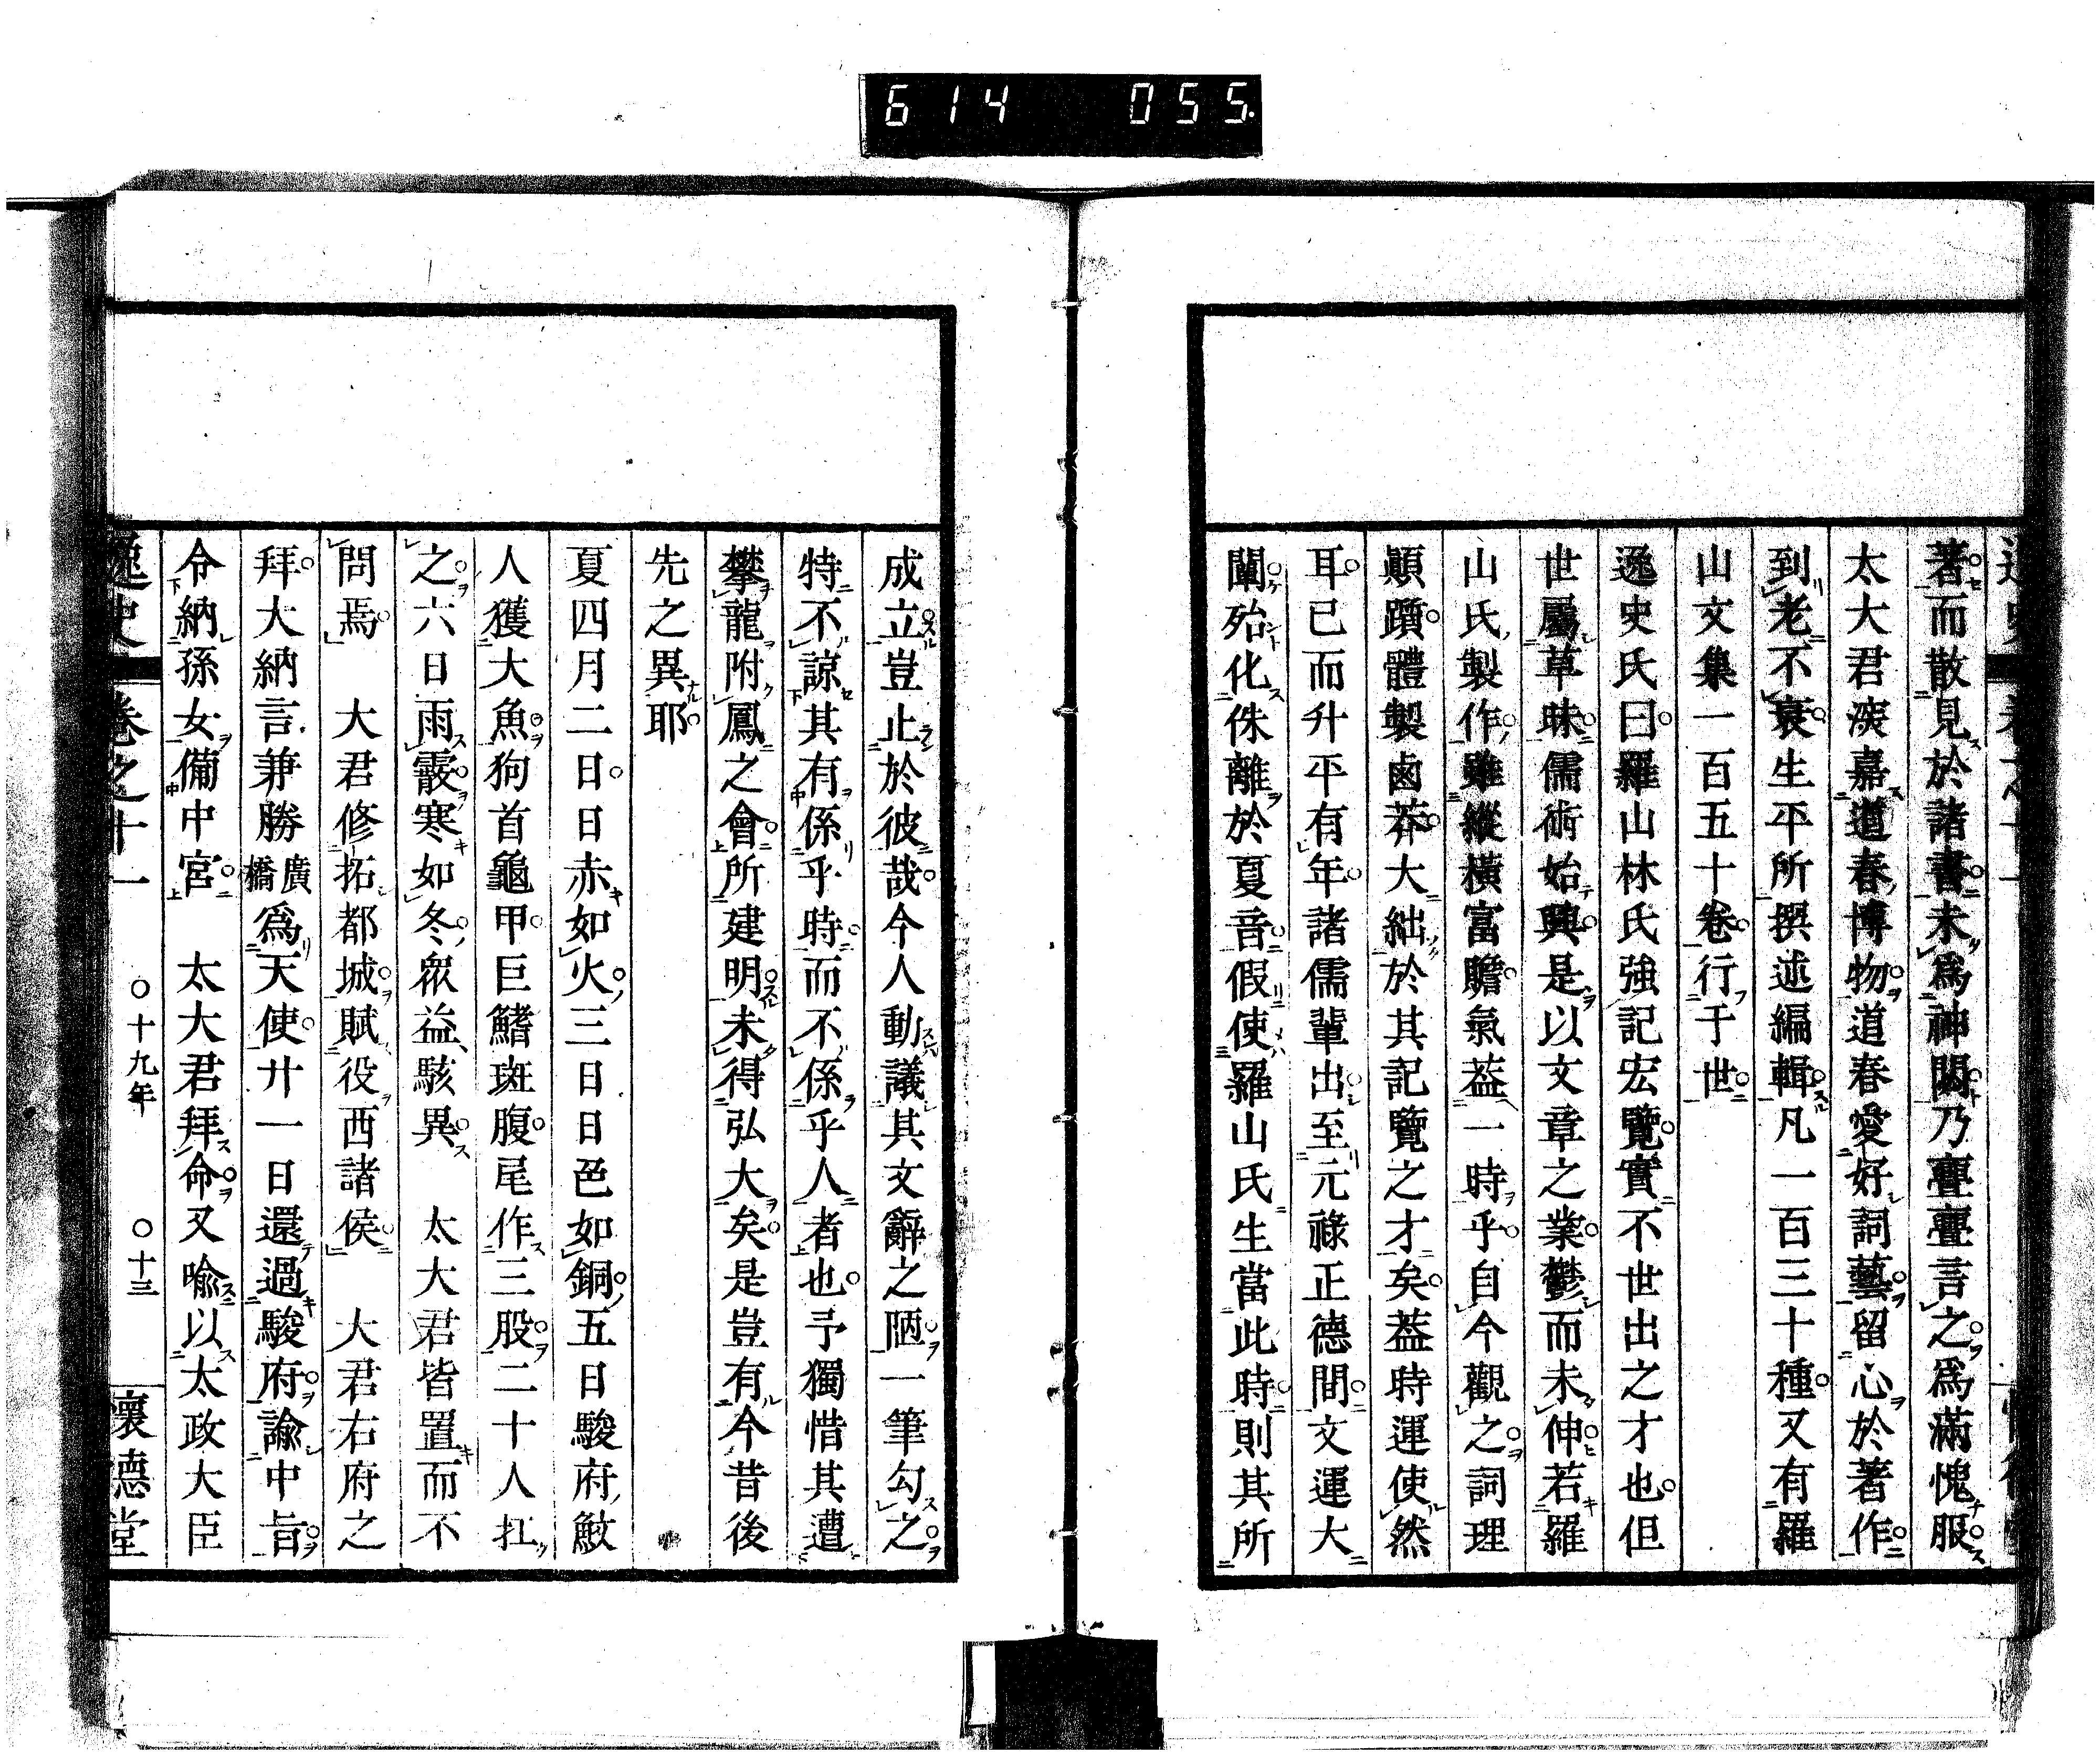 614 055.
著而散見於諸書未爲神閟乃亹亹言之爲滿愧服
太大君深嘉道春博物道春愛好詞藝留心於著作
到老不衰生平所撰述編輯凡一百三十種又有羅
山文集一百五十卷行于世
逸史氏曰羅山林氏強記宏覽實不世出之才也但
世屬草昧儒術始興是以文章之業鬱而未伸若羅
山氏製作雖縱橫富贍氣蓋一時乎自今觀之詞理
顚躓體製鹵莽大絀於其記覽之才矣蓋時運使然
耳已而升平有年諸儒輩出至元祿正德間文運大
闡殆化侏離於夏音假使羅山氏生當此時則其所
成立豈止於彼哉今人動議其文辭之陋一筆勾之
特不諒其有係乎時而不係乎人者也予獨惜其遭
攀龍附鳳之會所建明未得弘大矣是豈有今昔後
先之異耶
夏四月二日日赤如火三日日色如銅五日駿府鮫
人獲大魚狗首龜甲巨鰭斑腹尾作三股二十人扛
之六日雨霰寒如冬衆益駭異　太大君皆置而不
問焉　大君修拓都城賦役西諸侯　大君右府之
拜大納言兼勝廣橋爲天使廿一日還過駿府諭中旨
令納孫女備中宮　太大君拜命又喩以太政大臣
逸史 卷之十一 〇十九年 〇十三 懷德堂